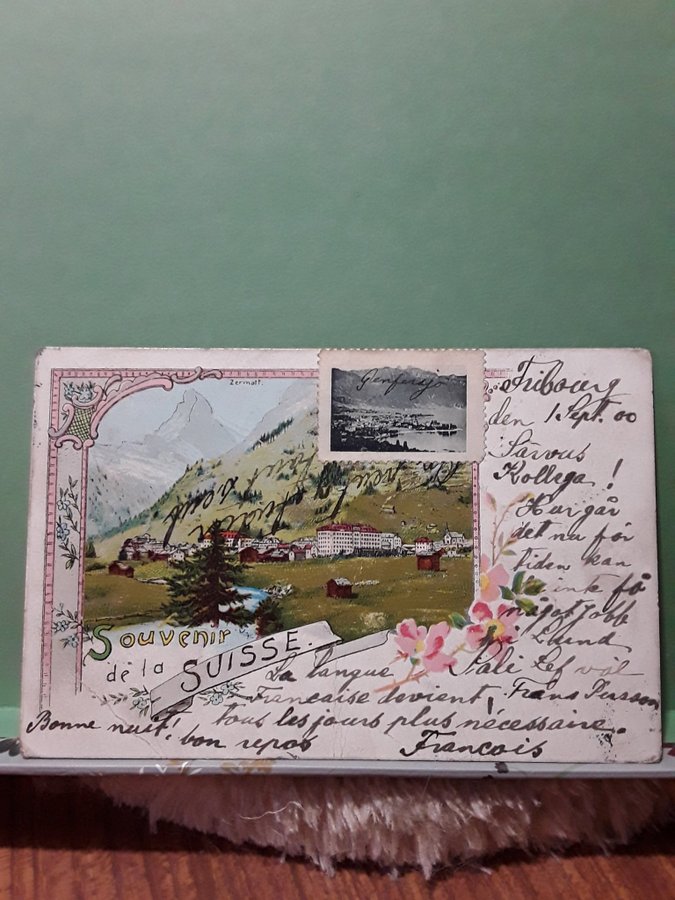 Zermatt.
Genfersjö
Fribourg
den 1 Sept. 00
Särvus
Kollega!
Hur går
det nu för
tiden kan
inte få
något jobb
i Lund
val
Frans Persson
Souvenir
de la SUISSE.
La langue
Francaise devient
tous les jours plus nécessaire.
Bonne nuit!
bon repos
Francois